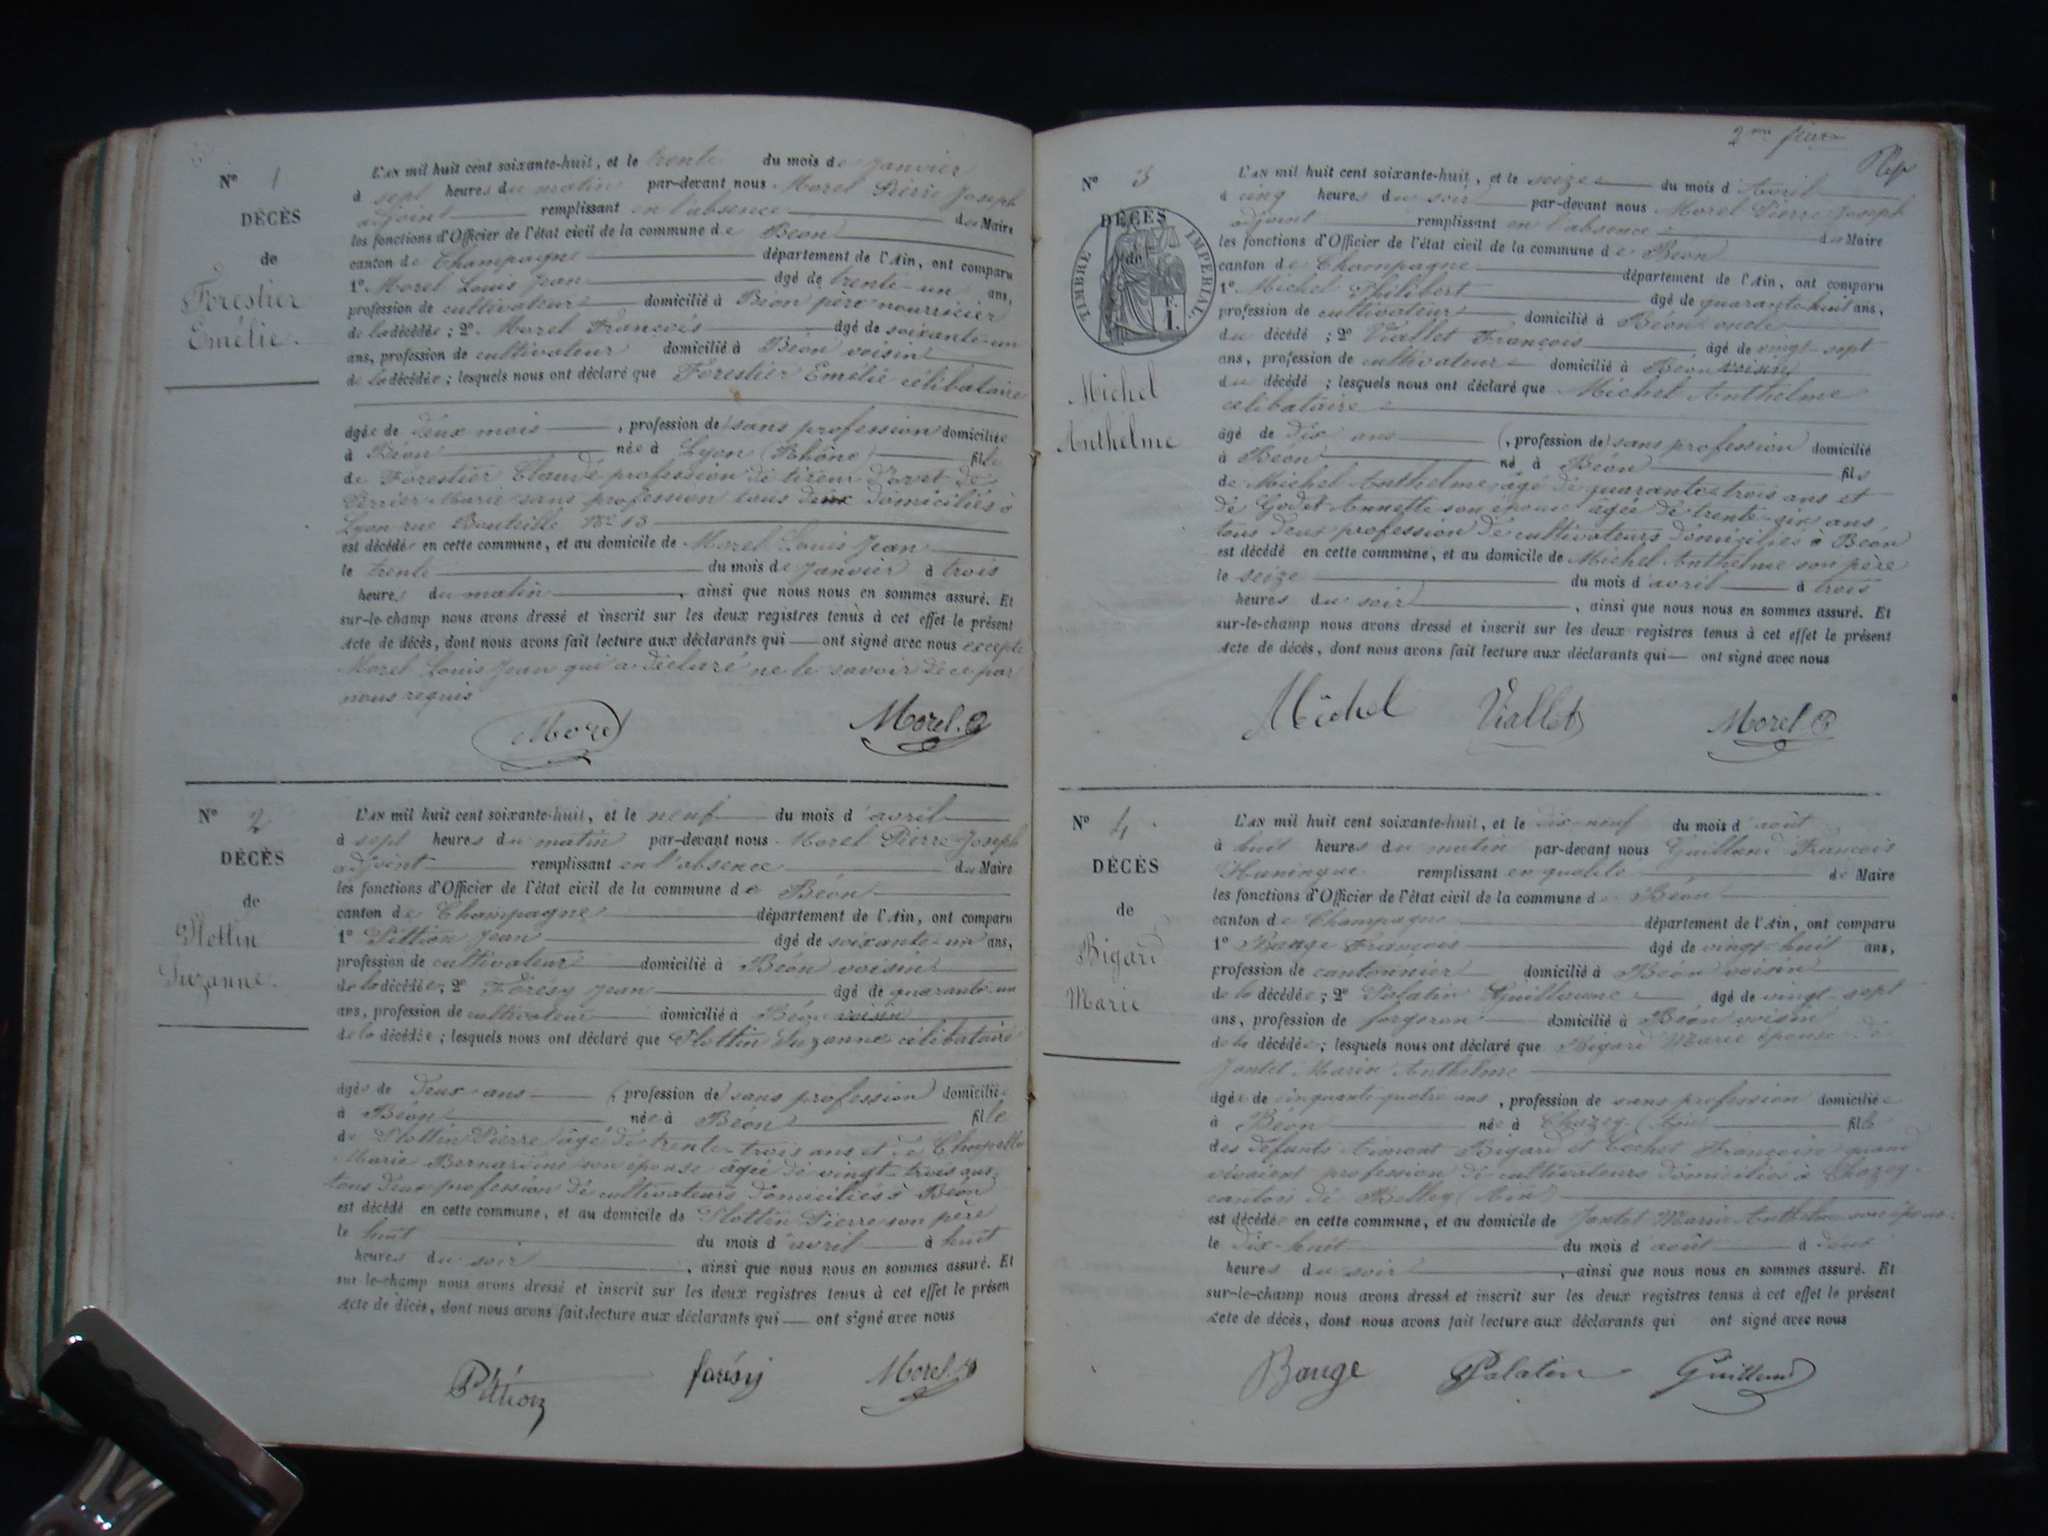 N° 1
DÉCÈS
de
Forestier
Emélie.
L'AN mil huit cent soixante-huit, et le trente du mois de janvier
à sept heures du matin par-devant nous Morel Pierre Joseph
adjoint remplissant en l'absence du Maire
les fonctions d'Officier de l'état civil de la commune de Béon
canton de Champagne département de l'Ain, ont comparu
1° Morel Louis Jean âgé de trente-un ans,
profession de cultivateur domicilié à Béon père nourricier
de la décédée ; 2° Morel François âgé de soixante-un
ans, profession de cultivateur domicilié à Béon voisin
de la décédée ; lesquels nous ont déclaré que Forestier Emélie célibataire
âgée de deux mois , profession de (sans profession domiciliée
à Béon née à Lyon (Rhône) fille
de Forestier Claude profession de tireur d'or et de
Perrier Marie sans profession tous deux domiciliés à
Lyon rue Bouteille N° 13
est décédée en cette commune, et au domicile de Morel Louis Jean
le trente du mois de janvier à trois
heures du matin , ainsi que nous nous en sommes assuré. Et
sur-le-champ nous avons dressé et inscrit sur les deux registres tenus à cet effet le présent
Acte de décès, dont nous avons fait lecture aux déclarants qui ont signé avec nous excepté
Morel Louis Jean qui a déclaré ne le savoir de ce par
nous requis
Morel Morel.
N° 2
DÉCÈS
de
Plottin
Suzanne.
L'AN mil huit cent soixante-huit, et le neuf du mois d'avril
à sept heures du matin par-devant nous Morel Pierre Joseph
adjoint remplissant en l'absence du Maire
les fonctions d'Officier de l'état civil de la commune de Béon
canton de Champagne département de l'Ain, ont comparu
1° Pittion Jean âgé de soixante-un ans,
profession de cultivateur domicilié à Béon voisin
de la décédée ; 2° Féresy Jean âgé de quarante-un
ans, profession de cultivateur domicilié à Béon voisin
de la décédée ; lesquels nous ont déclaré que Plottin Suzanne célibataire
âgée de deux ans (profession de) sans profession domiciliée
à Béon née à Béon fille
de Plottin Pierre âgé de trente-trois ans et de
Marie Bernardine son épouse âgée de vingt-trois ans
tous deux profession de cultivateurs domiciliés à Béon
est décédé en cette commune, et au domicile de Plottin Pierre son père
le huit du mois d'avril à huit
heures du soir , ainsi que nous nous en sommes assuré. Et
sur-le-champ nous avons dressé et inscrit sur les deux registres tenus à cet effet le présen
Acte de décès, dont nous avons fait lecture aux déclarants qui ont signé avec nous
Pittion Morel.
2me
N° 3
DÉCÈS
de
TIMBRE IMPÉRIAL
F.
1.
Michel
Anthelme
L'AN mil huit cent soixante-huit, et le seize du mois d'Avril
à cinq heures du soir par-devant nous Morel Pierre Joseph
adjoint remplissant en l'absence du Maire
les fonctions d'Officier de l'état civil de la commune de Béon
canton de Champagne département de l'Ain, ont comparu
1° Michel Philibert âgé de quarante-huit ans,
profession de cultivateur domicilié à Béon oncle
du décédé ; 2° Viallet François âgé de vingt-sept
ans, profession de cultivateur domicilié à Béon voisin
du décédé ; lesquels nous ont déclaré que Michel Anthelme
célibataire
âgé de dix ans (, profession de) sans profession domicilié
à Béon né à Béon fils
de Michel Anthelme âgé de quarante-trois ans et
de Godet Annette son épouse âgée de trente-six ans
tous deux profession de cultivateurs domiciliés à Béon
est décédé en cette commune, et au domicile de Michel Anthelme son père
le seize du mois d'avril à trois
heures du soir , ainsi que nous nous en sommes assuré. Et
sur-le-champ nous avons dressé et inscrit sur les deux registres tenus à cet effet le présent
Acte de décès, dont nous avons fait lecture aux déclarants qui ont signé avec nous
Michel Viallet Morel
N° 4
DÉCÈS
de
Bigard
Marie
L'AN mil huit cent soixante-huit, et le dix-neuf du mois d'août
à huit heures du matin par-devant nous Guilland François
remplissant en qualité de Maire
les fonctions d'Officier de l'état civil de la commune de Béon
canton de Champagne département de l'Ain, ont comparu
1° Bauge François âgé de vingt-huit ans,
profession de cantonnier domicilié à Béon voisin
de la décédée ; 2° Palatin Guillaume âgé de vingt-sept
ans, profession de forgeron domicilié à Béon voisin
de la décédée ; lesquels nous ont déclaré que Bigard Marie épouse de
Jantet Marin Anthelme
âgée de cinquante-quatre ans , profession de sans profession domiciliée
à Béon née à Chazey (Ain) fille
des défunts Aimont Bigard et Cochet Françoise quand
vivaient profession de cultivateurs domiciliés à Chazey
canton de Belley (Ain)
est décédée en cette commune, et au domicile de Jantet Marin Anthelme son époux
le dix-huit du mois d'août à deux
heures du soir , ainsi que nous nous en sommes assuré. Et
sur-le-champ nous avons dressé et inscrit sur les deux registres tenus à cet effet le présent
Acte de décès, dont nous avons fait lecture aux déclarants qui ont signé avec nous
Bauge Palatin Guilland